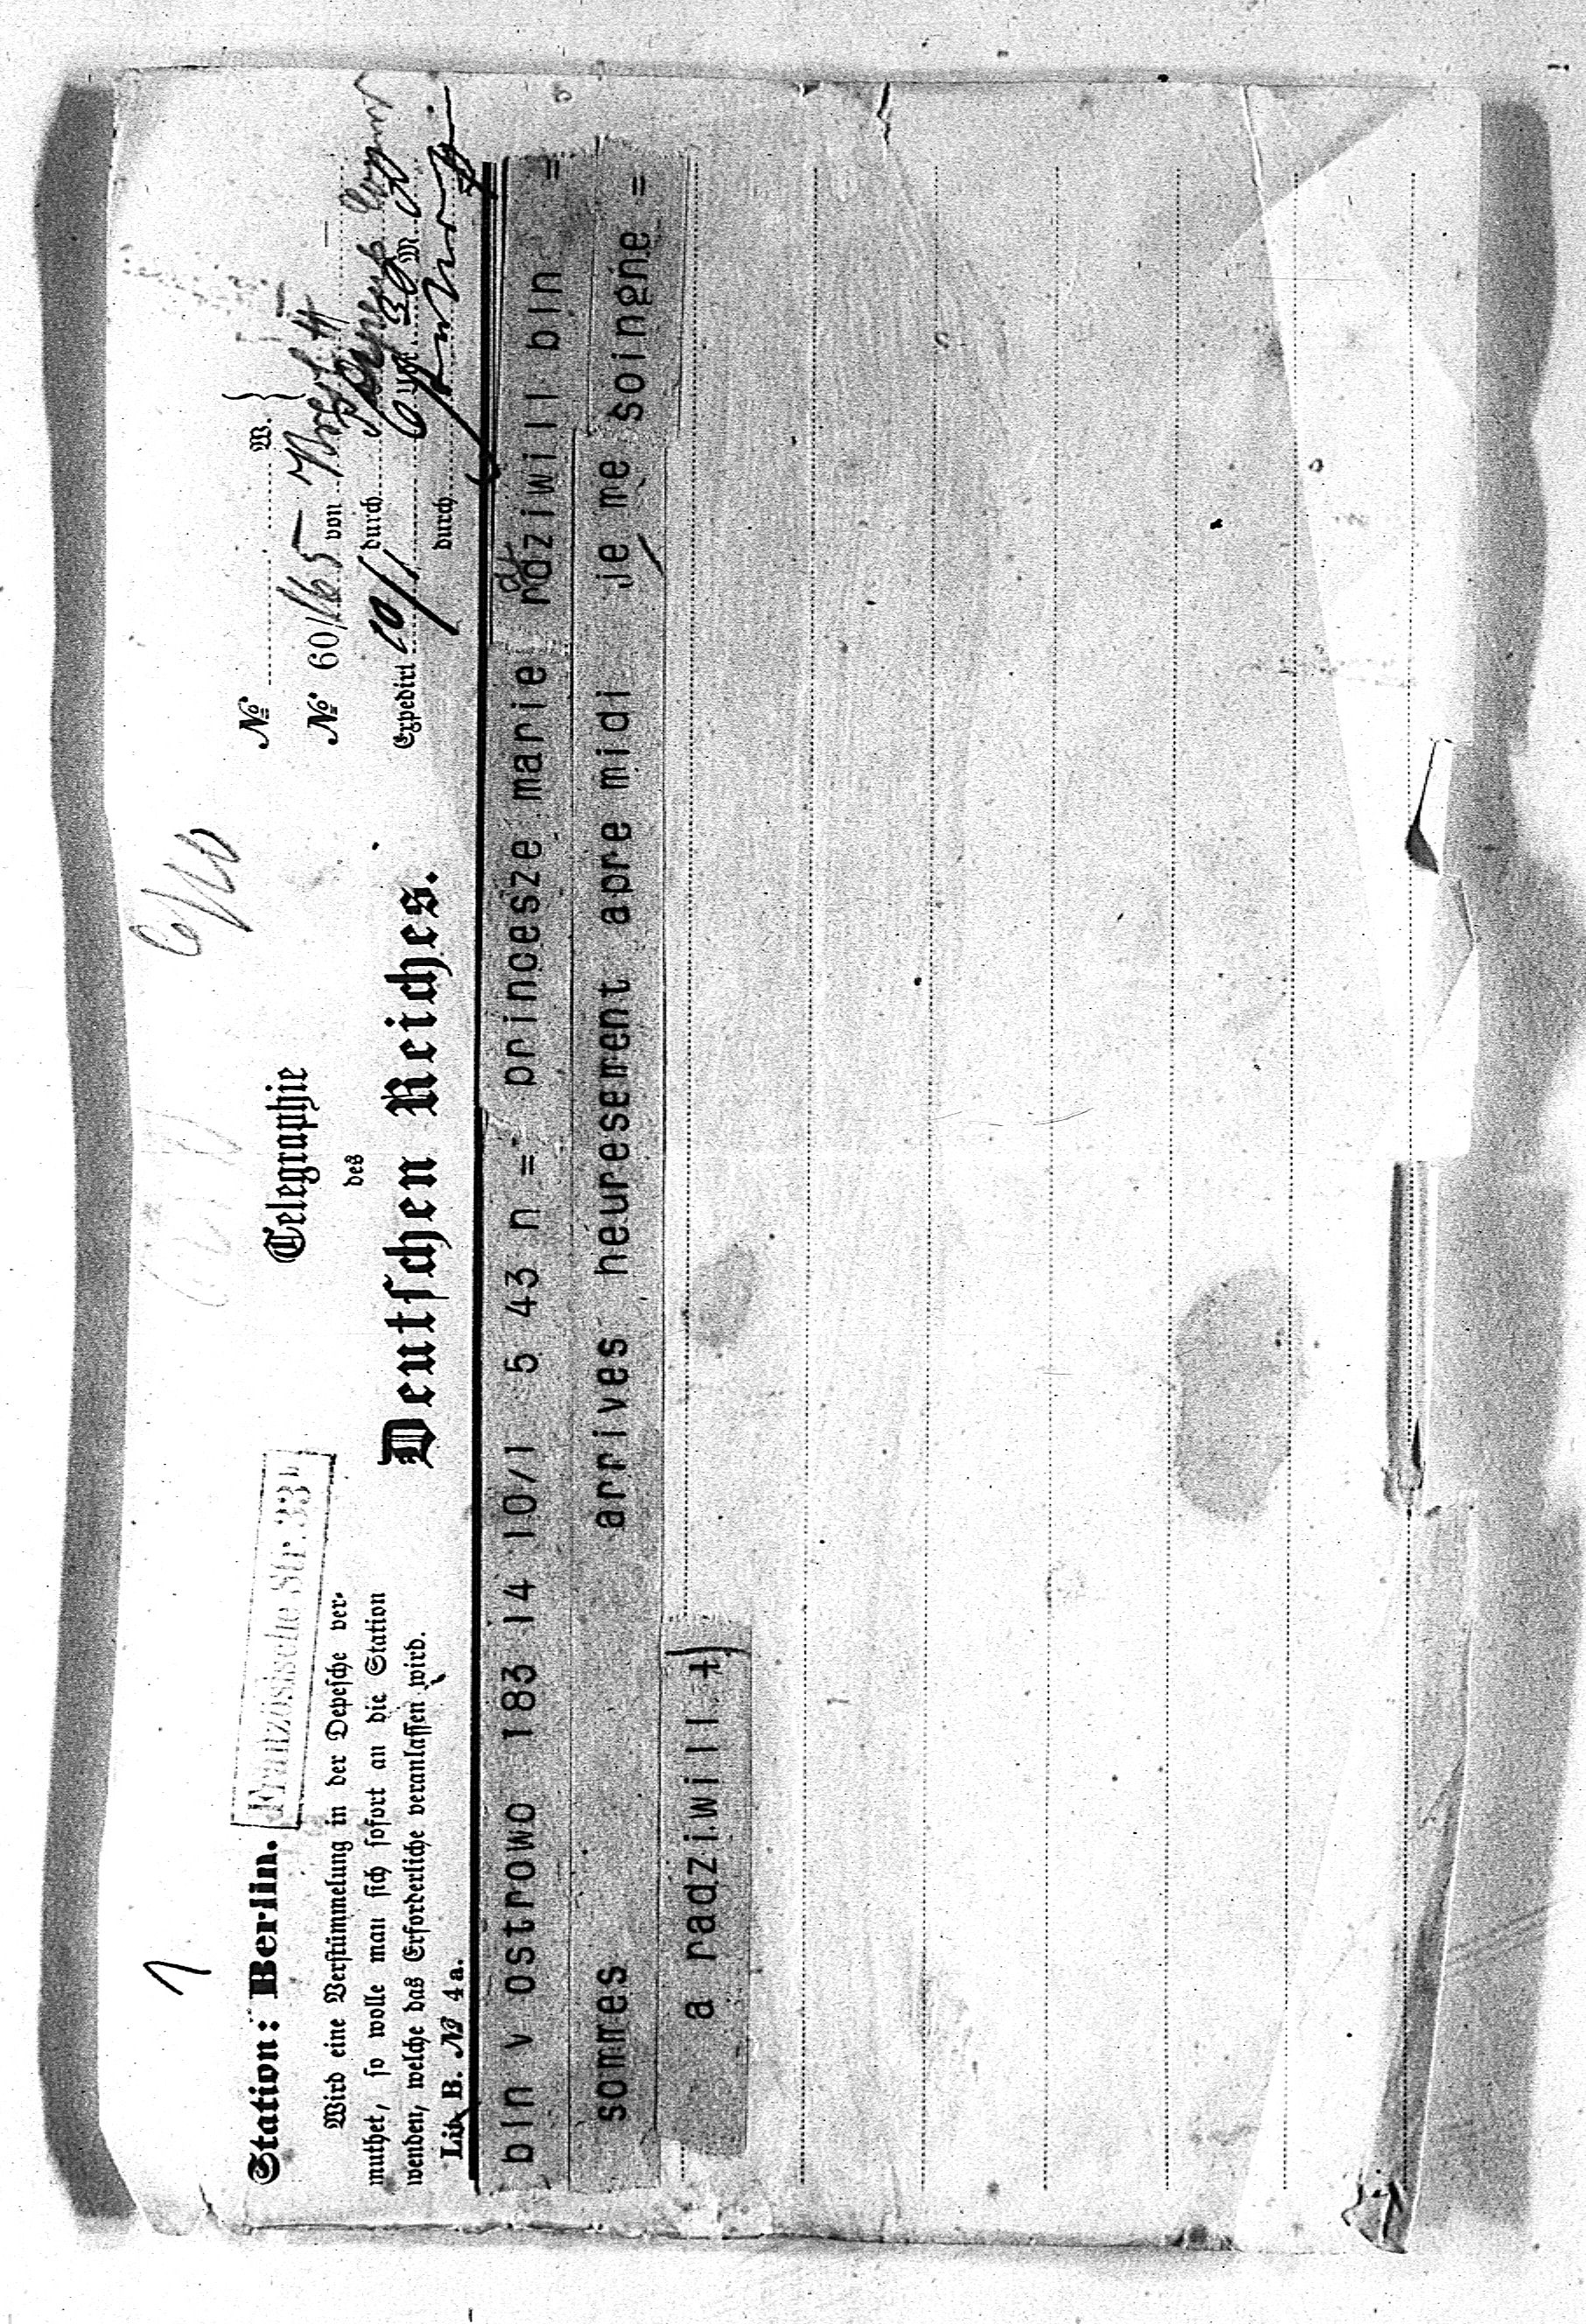 1
Station: Berlin.
Französische Str. 33
Wird eine Verstümmelung in der Depesche ver-
muthet, so wolle man sich sofort an die Station
wenden, welche das Erforderliche veranlassen wird.
Lit. B. № 4a.
Telegraphie
des
Deutschen Reiches.
№ W. }
№ 60/165 von
Expedirt 10/1 durch
6 Uhr 30 M.
durch
bln v ostrowo 183 14 10/1 5 43 n = princesze marie rdziwill bln =
a
sommes arrives heuresement apre midi je me soingne =
a radziwill +